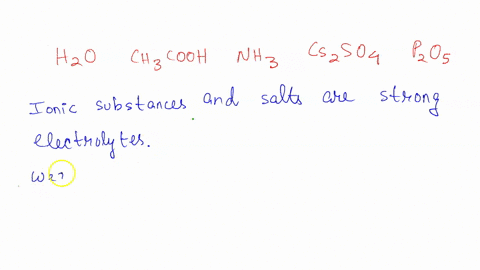 H2O CH3COOH NH3 Cs2SO4 P2O5
Ionic substances and salts are strong
electrolytes.